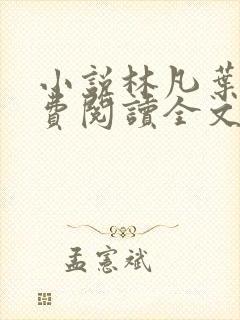 小說林凡葉
費閱讀全文
孟憲斌